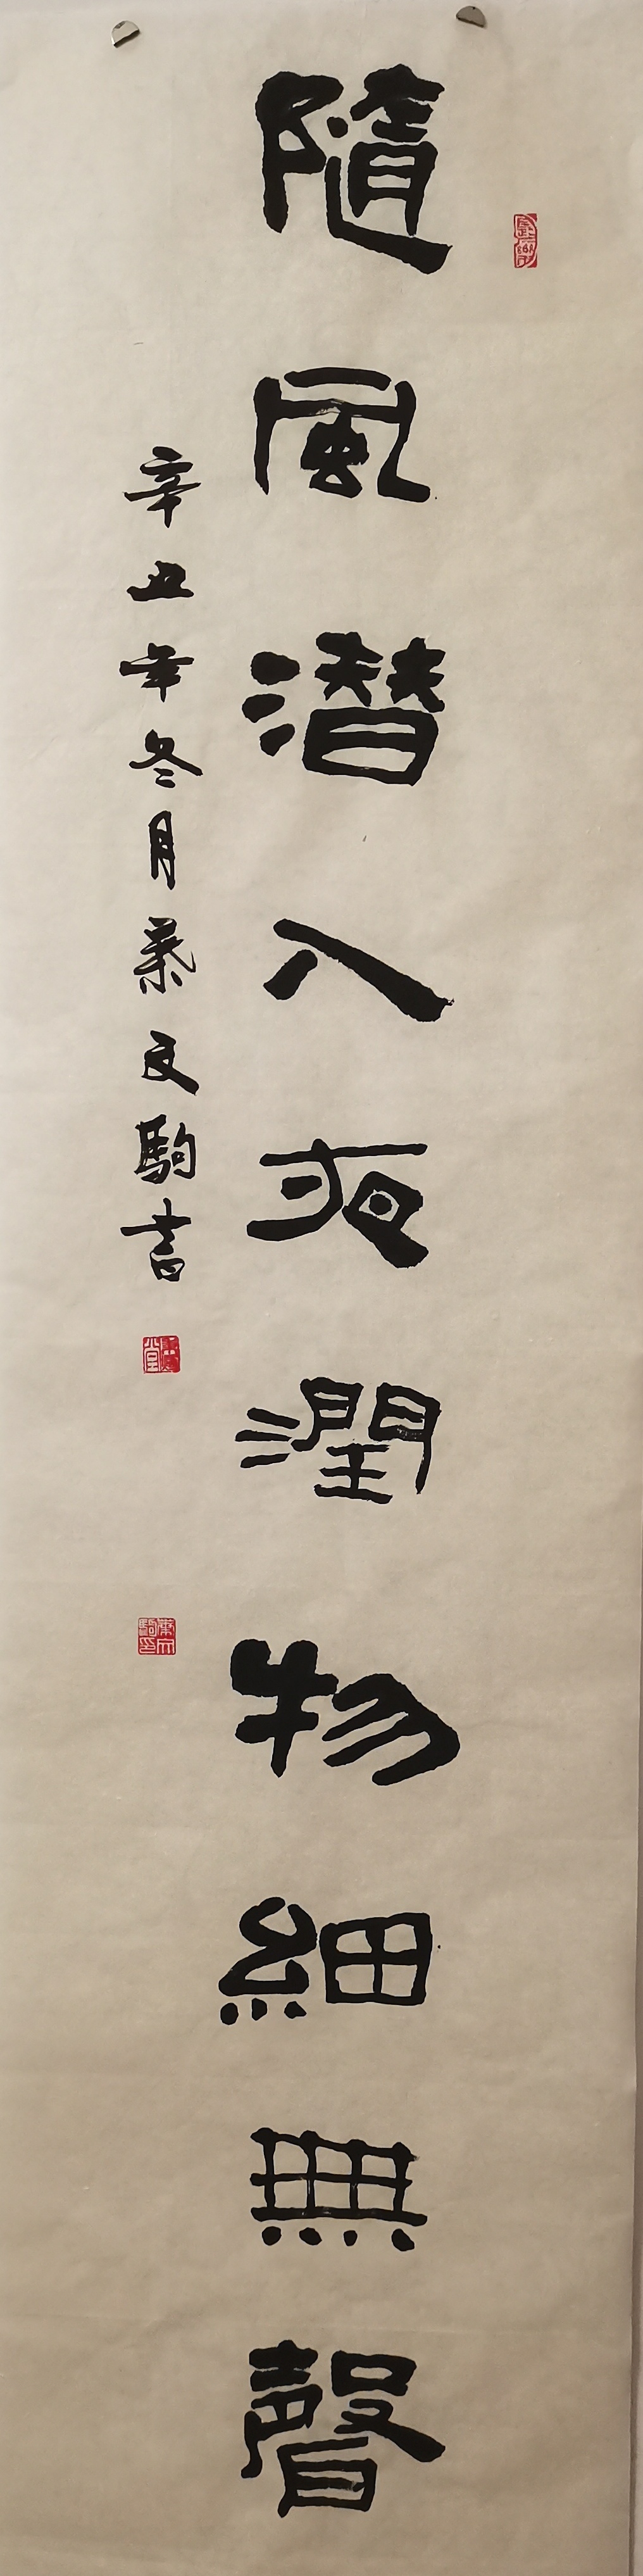 隨風潛入夜潤物細無聲
辛丑年冬月葉文駒書